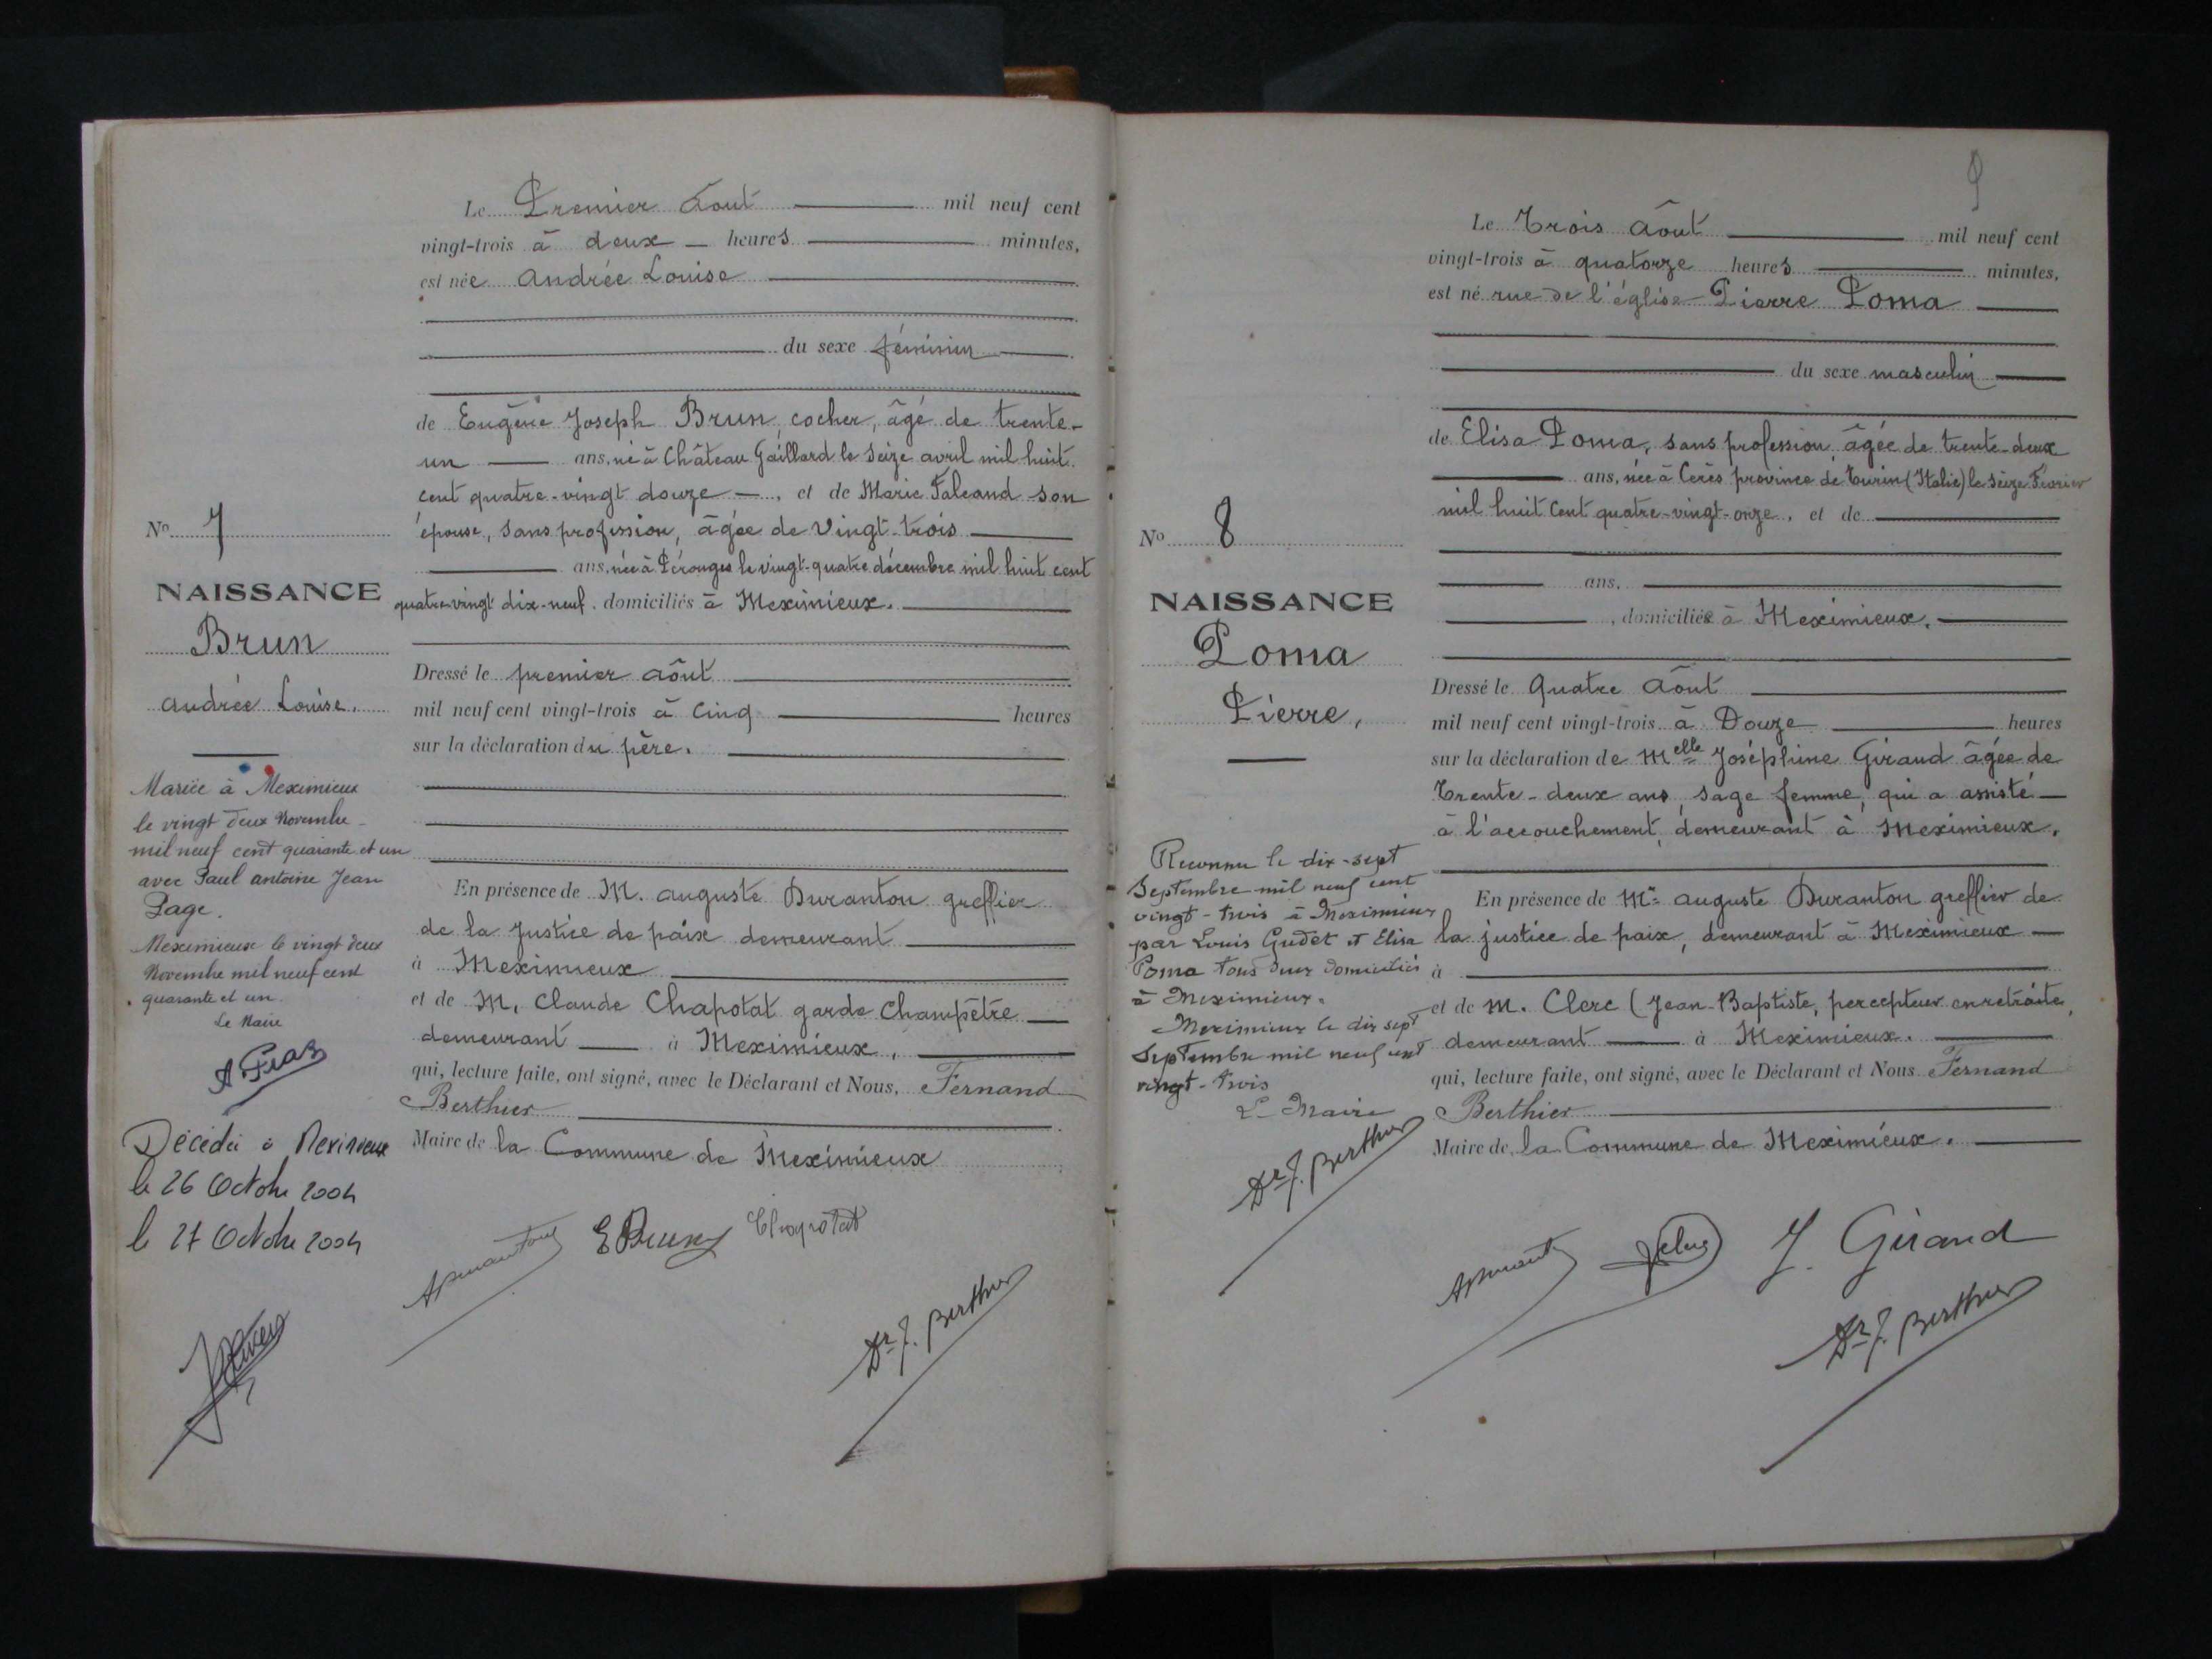 Le Premier Août mil neuf cent
vingt-trois à deux heures minutes,
est née Andrée Louise
du sexe féminin
de Eugène Joseph Brun, cocher, âgé de trente-
un ans, né à Château Gaillard le Seize avril mil huit
cent quatre-vingt douze, et de Marie Falcand son
épouse, sans profession, âgée de Vingt-trois
ans, née à Pérouges le vingt-quatre décembre mil huit cent
quatre-vingt dix-neuf. domiciliés à Meximieux.
Dressé le premier Août
mil neuf cent vingt-trois à Cinq heures
sur la déclaration du père.
En présence de M. Auguste Duranton greffier
de la Justice de paix demeurant
à Meximieux
et de M. Claude Chapotat garde Champêtre
demeurant à Meximieux,
qui, lecture faite, ont signé, avec le Déclarant et Nous, Fernand
Berthier
Maire de la Commune de Meximieux
ADuranton EBrun Chapotat
Dr F. Berthier
No 7
NAISSANCE
Brun
Andrée Louise.
Mariée à Meximieux
le vingt deux Novembre
mil neuf cent quarante et un
avec Paul Antoine Jean
Page.
Meximieux le vingt deux
Novembre mil neuf cent
quarante et un
Le Maire
Décédée à Meximieux
le 26 Octobre 2004
le 27 Octobre 2004
9
Le Trois Août mil neuf cent
vingt-trois à quatorze heures minutes,
est né rue de l'église Pierre Poma
du sexe masculin
de Elisa Poma, sans profession, âgée de trente-deux
ans, née à Cérès province de Turin (Italie) le Seize Février
mil huit Cent quatre-vingt-onze, et de
ans,
, domiciliée à Meximieux.
Dressé le Quatre Août
mil neuf cent vingt-trois à Douze heures
sur la déclaration de Melle Joséphine Giraud âgée de
Trente-deux ans, sage femme, qui a assisté
à l'accouchement, demeurant à Meximieux.
En présence de Mr Auguste Duranton greffier de
la justice de paix, demeurant à Meximieux
à
et de M. Clerc (Jean-Baptiste, percepteur en retraite,
demeurant à Meximieux.
qui, lecture faite, ont signé, avec le Déclarant et Nous Fernand
Berthier
Maire de la Commune de Meximieux.
ADuranton J. Giraud
Dr F. Berthier
No 8
NAISSANCE
Poma
Pierre,
Reconnu le dix-sept
Septembre mil neuf cent
vingt-trois à Meximieux
par Louis Gudet et Elisa
Poma tous deux domiciliés
à Meximieux.
Meximieux le dix sept
Septembre mil neuf cent
vingt-trois
Le Maire
Dr F. Berthier